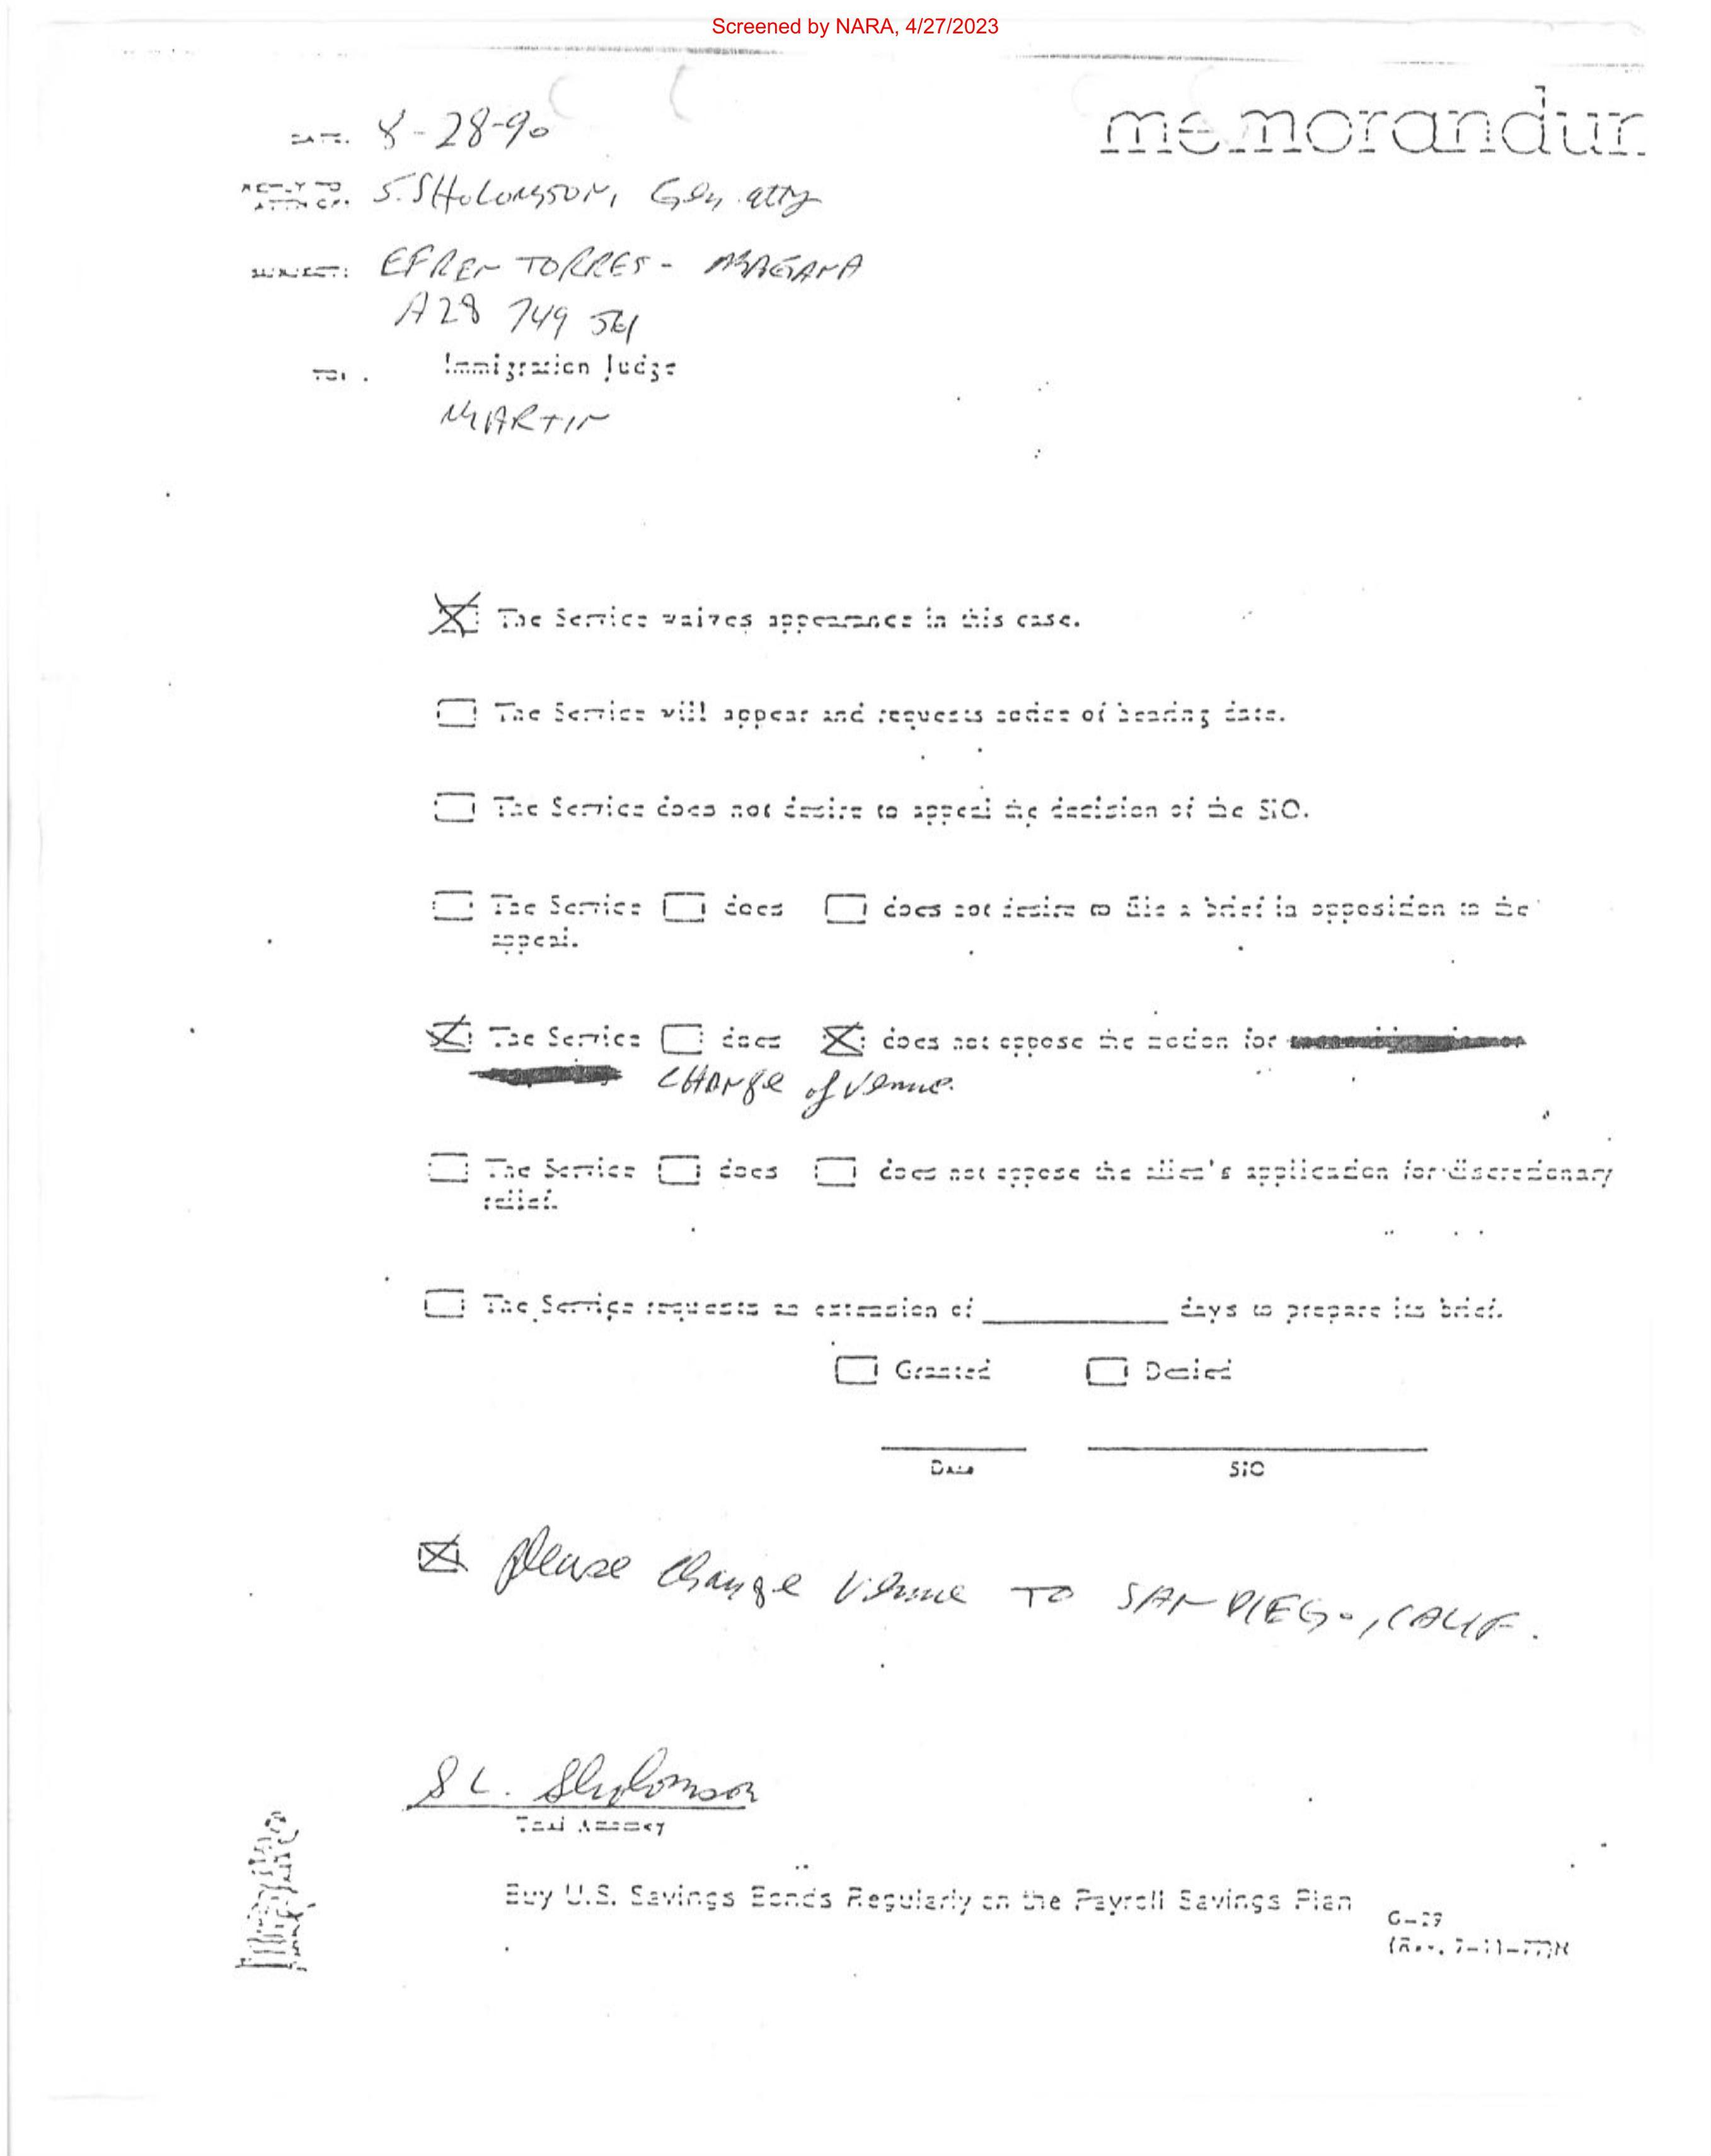 Screened by NARA, 4/27/2023
memorandum
DATE: 8-28-90
REPLY TO
ATTN OF: S. SHOLOMSON, Gen. atty
SUBJECT: EFREN TORRES - MAGANA
A28 749 561
TO: Immigration Judge
MARTIN
The Service waives appearance in this case.
The Service will appear and requests notice of hearing date.
The Service does not desire to appeal the decision of the SIO.
The Service does does not desire to file a brief in opposition to the
appeal.
The Service does does not oppose the motion for
CHANGE of venue.
The Service does does not oppose the alien's application for discretionary
relief.
The Service requests an extension of days to prepare its brief.
Granted Denied
Date SIO
please change venue TO SAN DIEGO, CALIF.
S L. Sholomson
Trial Attorney
Buy U.S. Savings Bonds Regularly on the Payroll Savings Plan
(Rev. 7-11-77)N